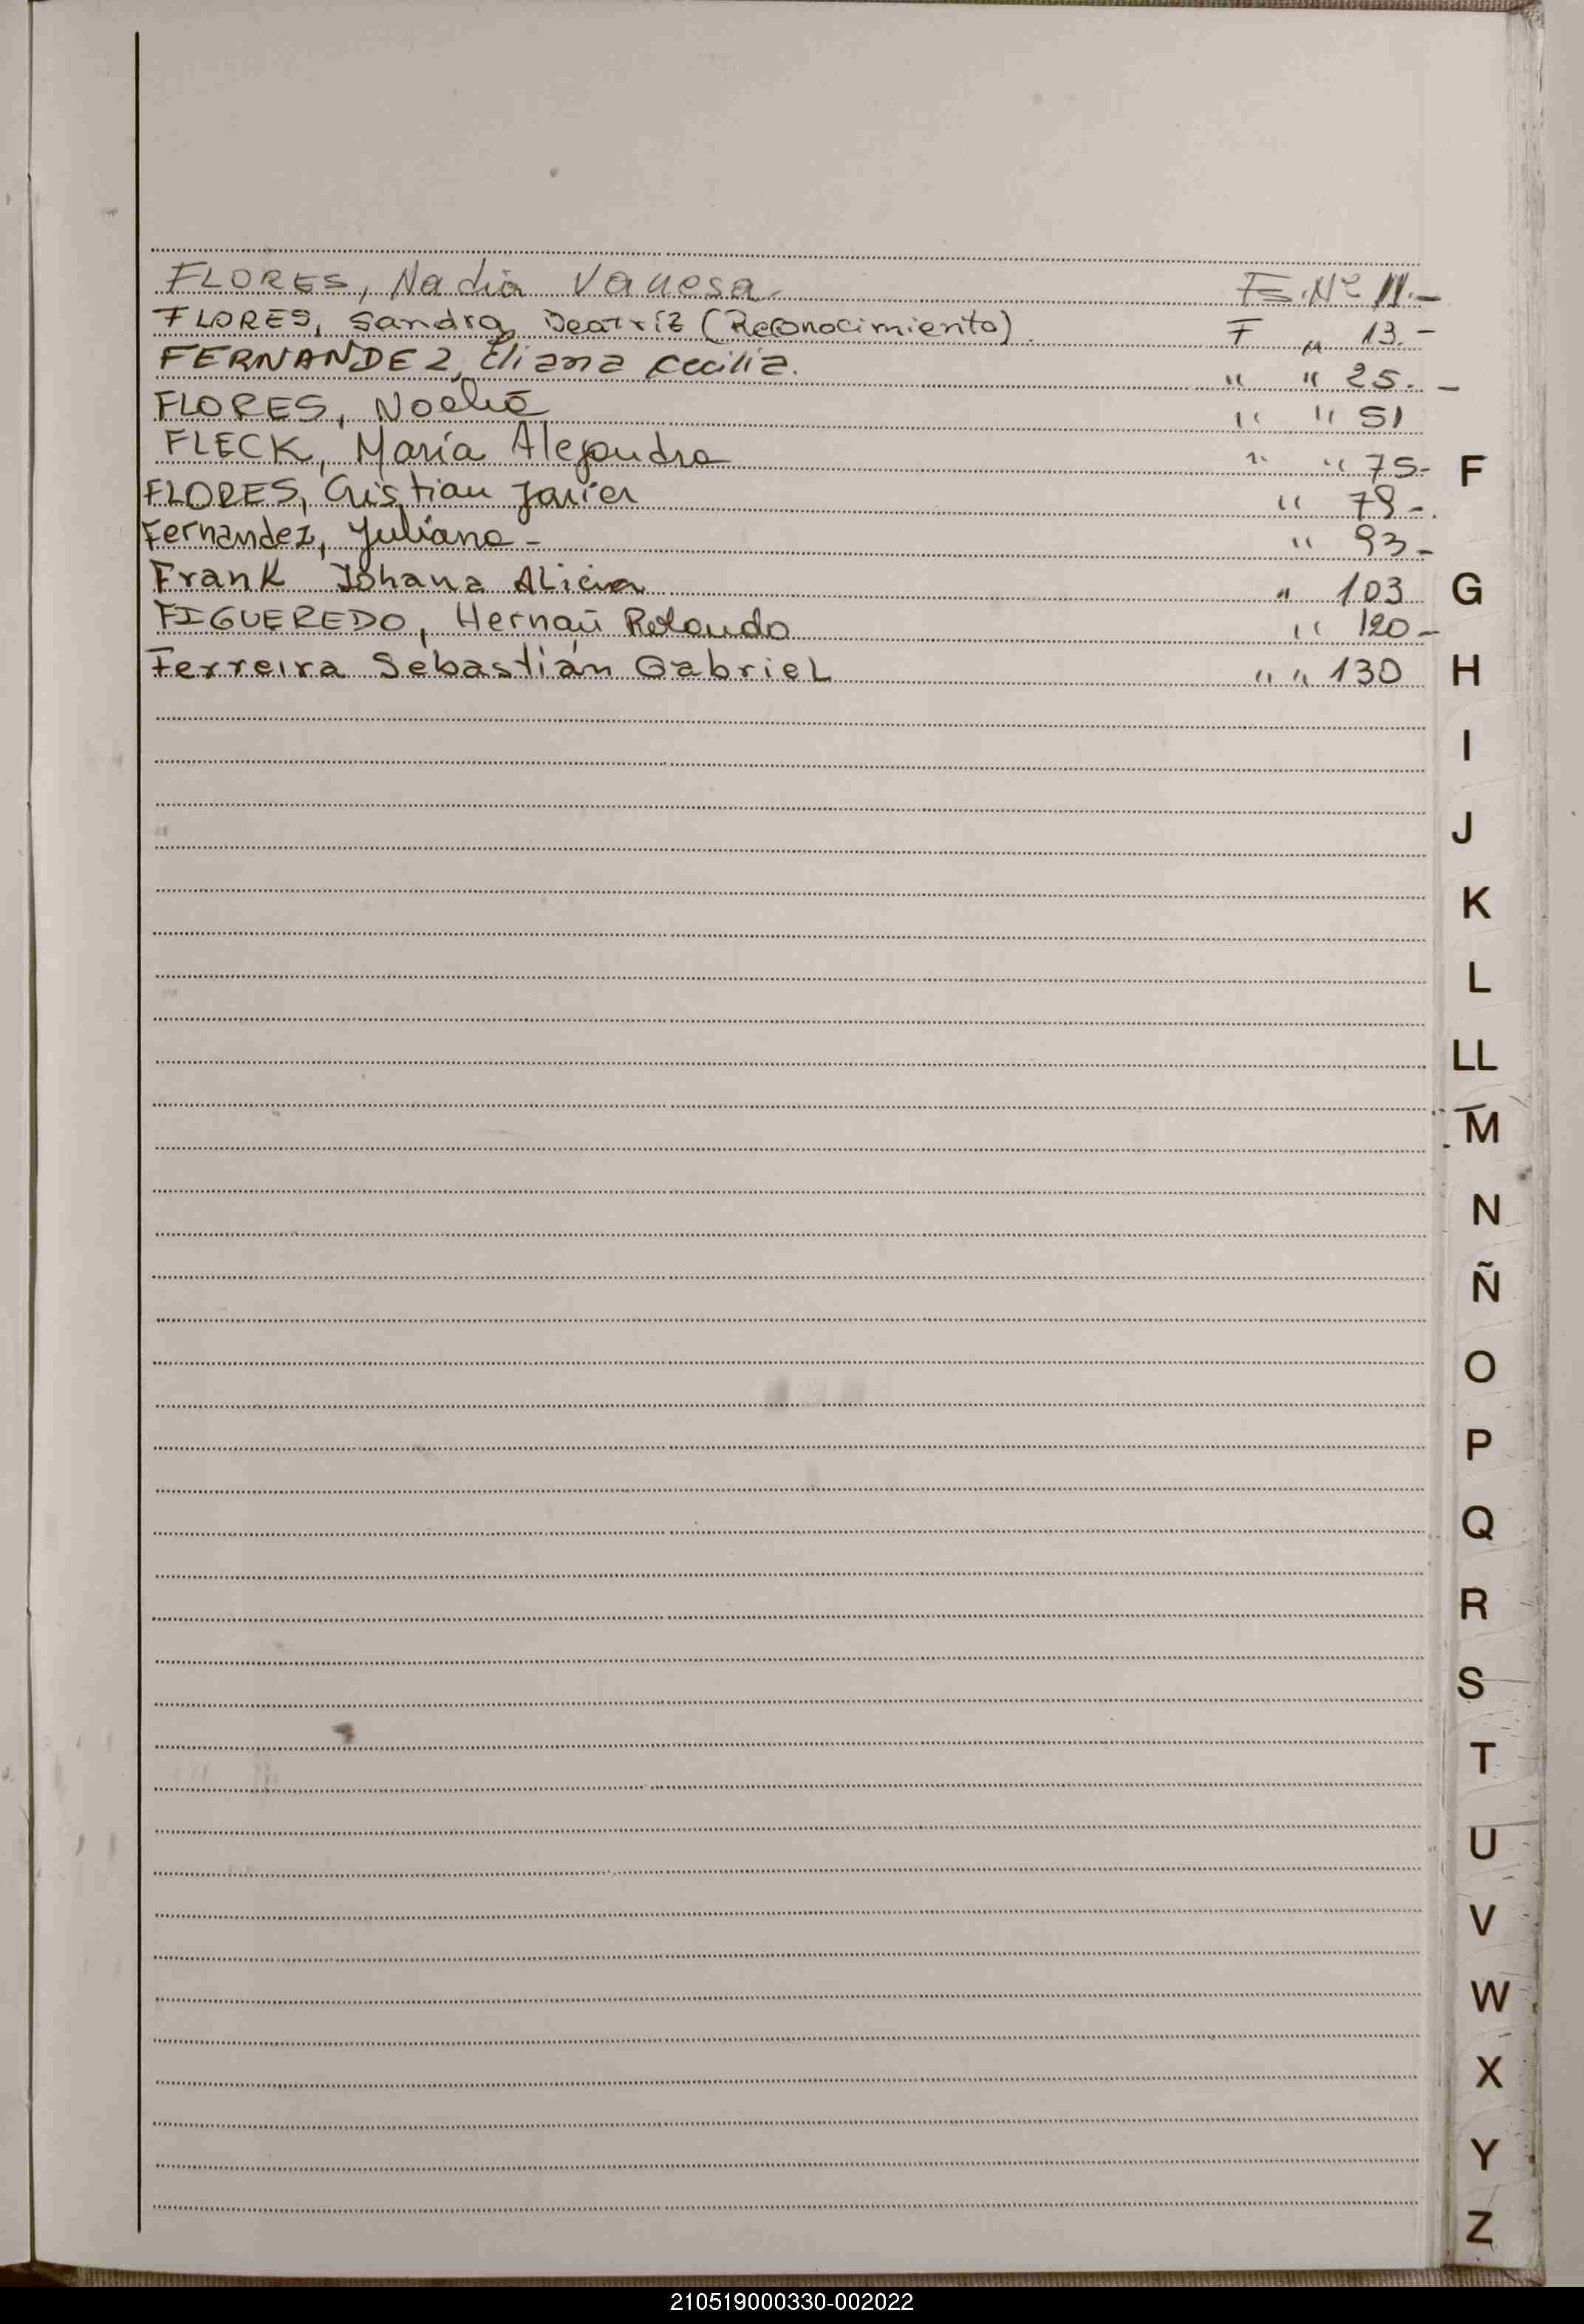 FLORES, Nadia Vanesa. Fs. Nº 11.-
FLORES, Sandra Beatriz (Reconocimiento). F " 13.-
FERNANDEZ, Eliana Cecilia. " " 25.-
FLORES, Noelia " " 51
FLECK, María Alejandra " " 75-
FLORES, Cristian Javier " 79-.
Fernandez, Juliana- " 93-
Frank Johana Alicia " 103
FIGUEREDO, Hernán Rolando " 120-
Ferreira Sebastián Gabriel " " 130
F
G
H
I
J
K
L
LL
M
N
Ñ
O
P
Q
R
S
T
U
V
W
X
Y
Z
210519000330-002022